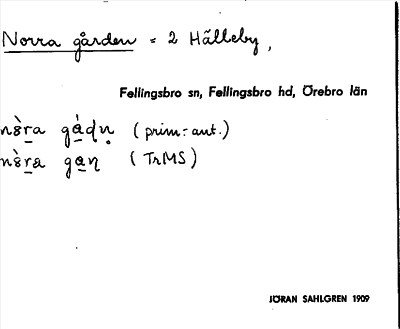 Norra gården = 2 Hälleby,
Fellingsbro sn, Fellingsbro hd, Örebro län
nòra gádn (prim.-ant.)
nòra gan (TrMS)
JÖRAN SAHLGREN 1909